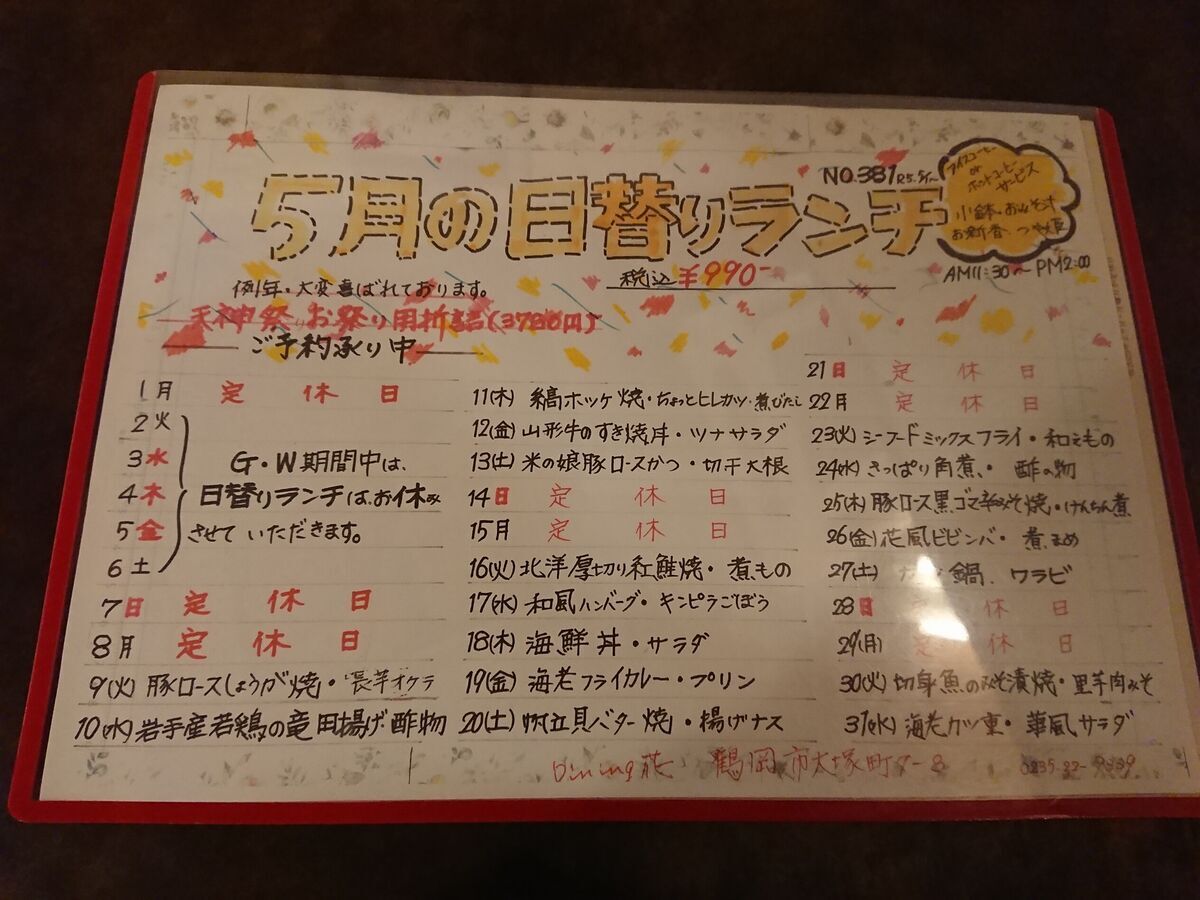 5月の日替りランチ
NO.381 R5.5/1~
アイスコーヒー
or
ホットコーヒー
サービス
小鉢、おみそ汁
お新香、つや姫
税込¥990-
AM11:30~PM2:00
例年・大変喜ばれております。
天神祭り お祭り用折詰(3780円)
ご予約承り中
1月 定休日
2火
3水
4木
5金
6土
G・W期間中は、
日替りランチは、お休み
させていただきます。
7日 定休日
8月 定休日
9(火) 豚ロースしょうが焼・長芋オクラ
10(水) 岩手産若鶏の竜田揚げ・酢物
11(木) 縞ホッケ焼・ちょっとヒレカツ・煮びたし
12(金) 山形牛のすき焼丼・ツナサラダ
13(土) 米の娘豚ロースかつ・切干大根
14日 定休日
15月 定休日
16(火) 北洋厚切り紅鮭焼・煮もの
17(水) 和風ハンバーグ・キンピラごぼう
18(木) 海鮮丼・サラダ
19(金) 海老フライカレー・プリン
20(土) 帆立貝バター焼・揚げナス
21日 定休日
22月 定休日
23(火) シーフードミックスフライ・和えもの
24(水) さっぱり角煮・酢の物
25(木) 豚ロース黒ゴマ辛みそ焼・けんちん煮
26(金) 花風ビビンバ・煮まめ
27(土) 鍋、ワラビ
28日 定休日
29(月) 定休日
30(火) 切身魚のみそ漬焼・里芋肉みそ
31(水) 海老カツ重・華風サラダ
Dining花 鶴岡市大塚町7-8